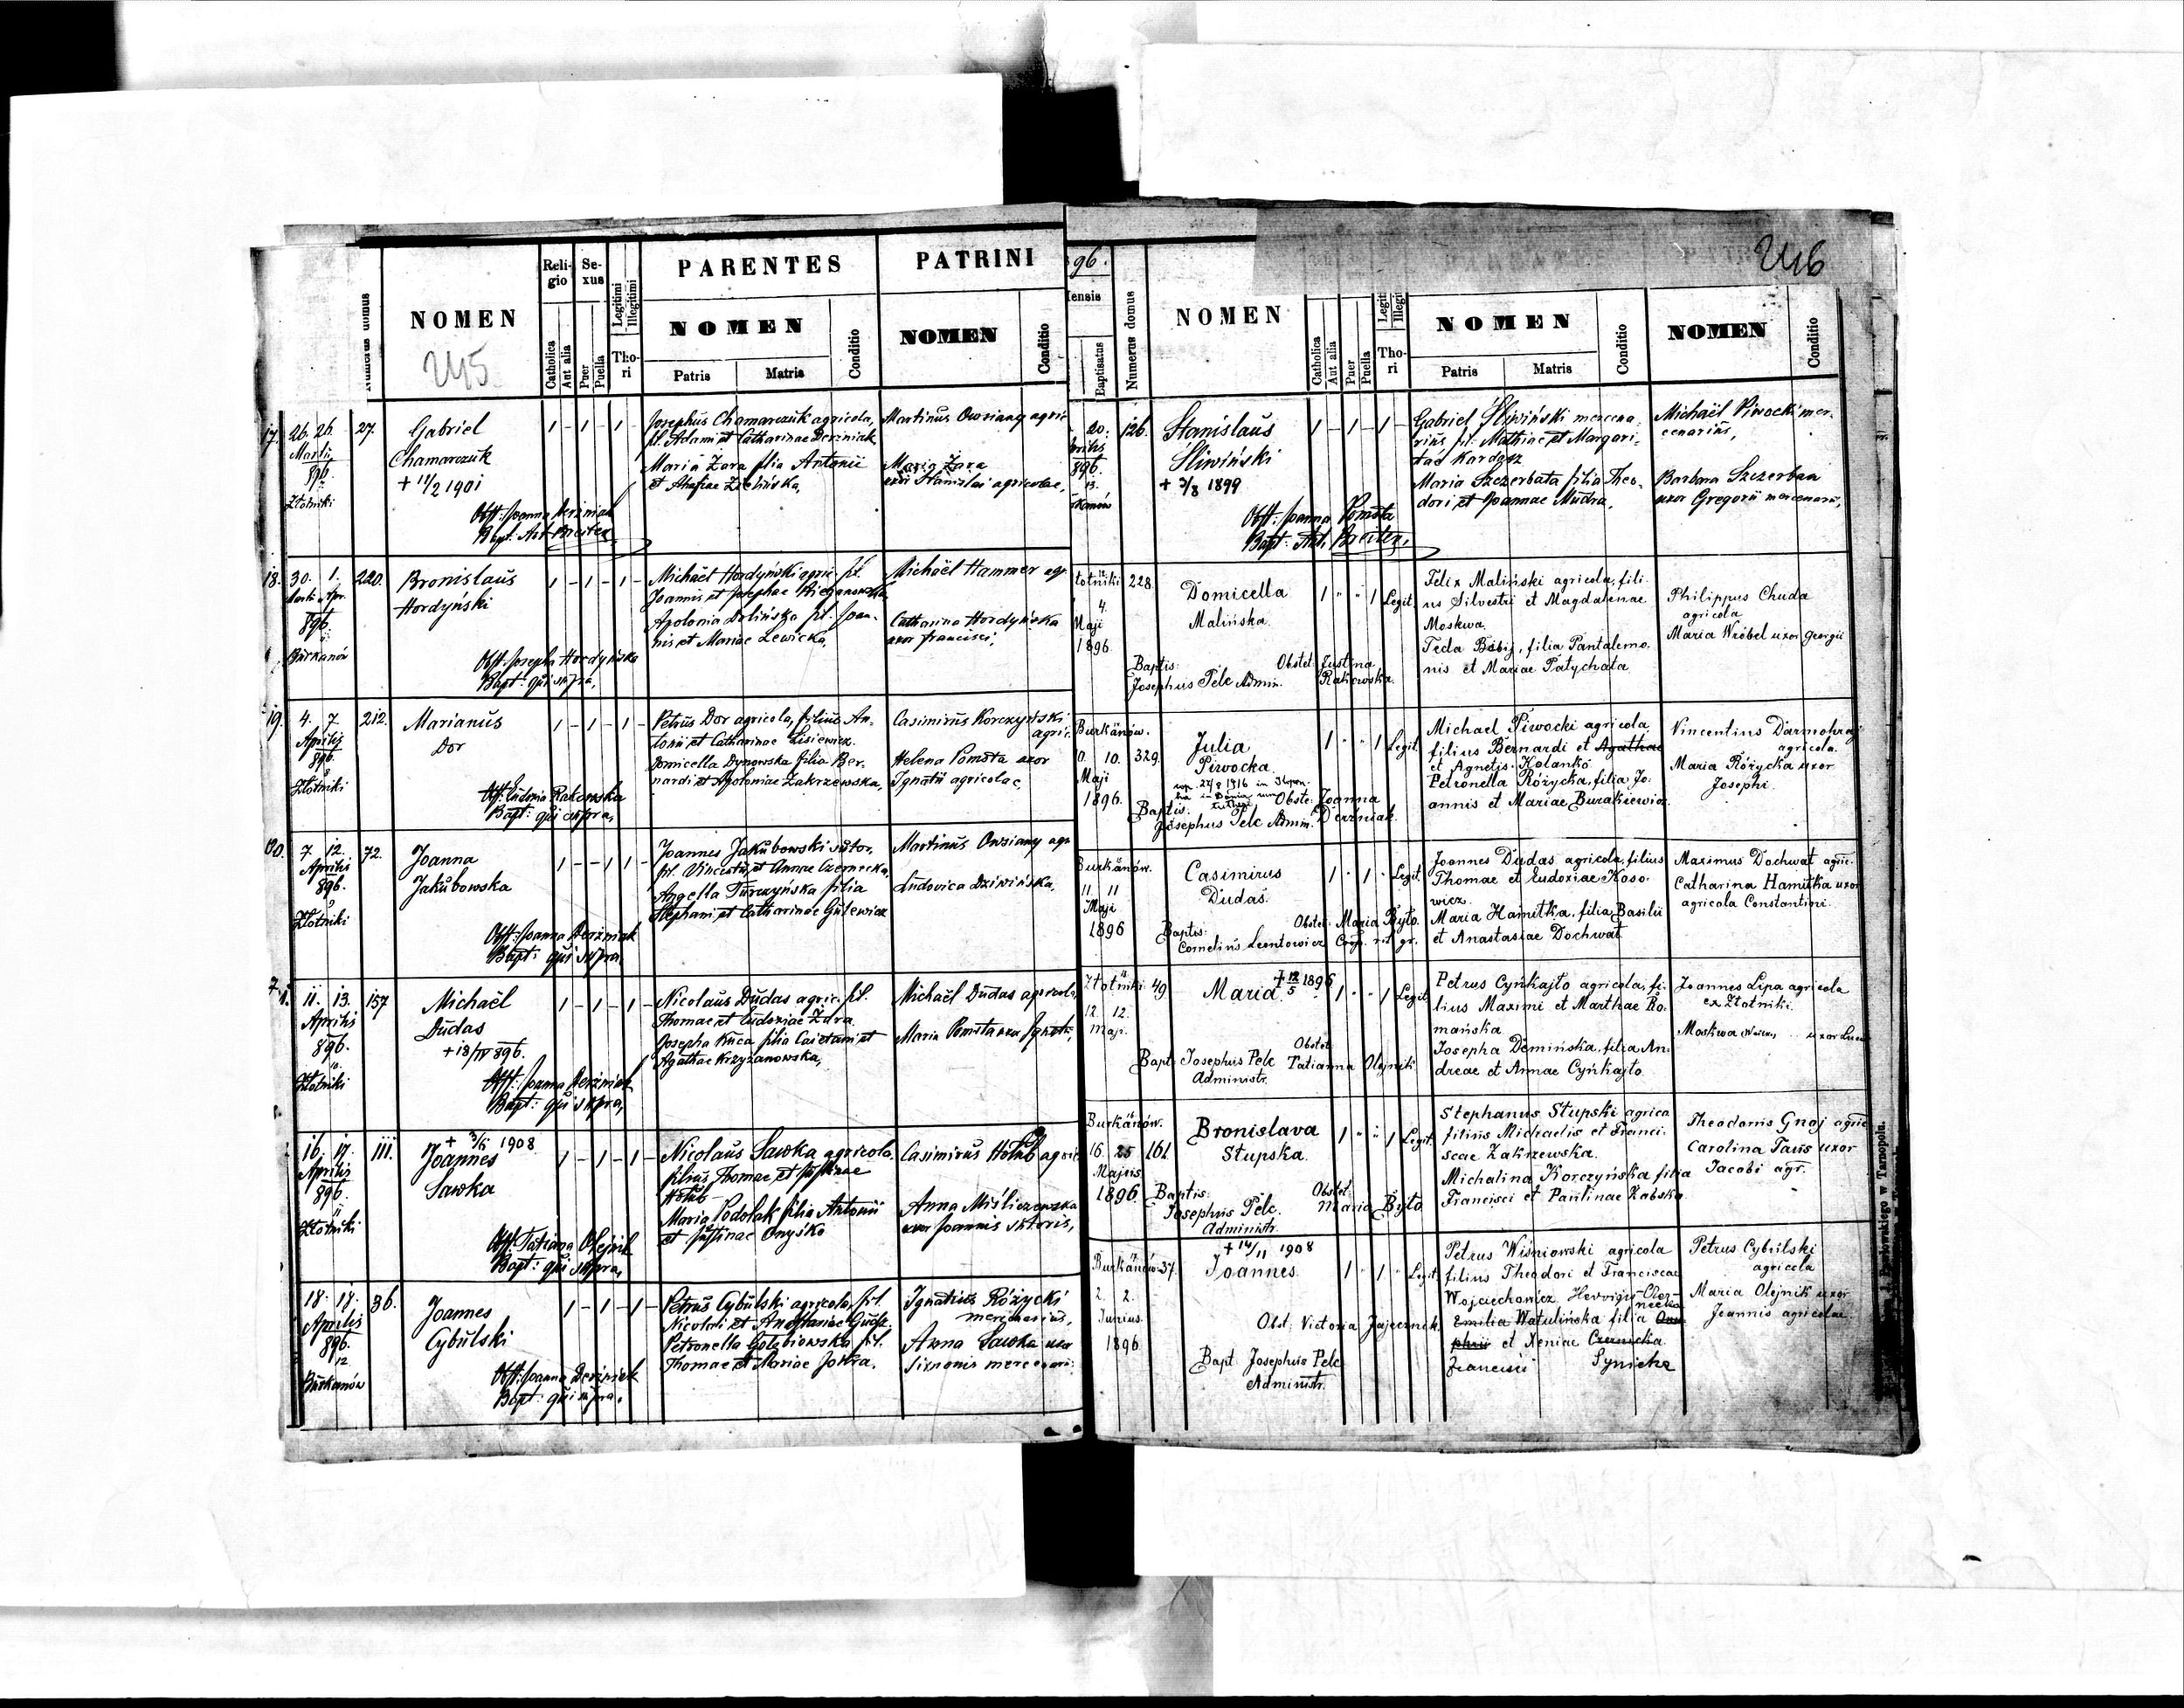 Numerus domus
NOMEN
245
Religio
Catholica
Aut alia
Sexus
Puer
Puella
Legitimi
Illegitimi
Thori
PARENTES
NOMEN
Patris
Matris
Conditio
PATRINI
NOMEN
Conditio
17.
26. 26.
Martii
896.
Złotniki
27.
Gabriel
Chamarczuk
+ 11/2 1901
Obst: Joanna Derżniak
Bapt: Ant. Breiter
1 – 1 – 1 –
Josephus Chamarczuk agricola,
fil. Adami et Catharinae Derżniak
Maria Żara filia Antonii
et Zielińska,
Martinus Owsiany agric
Maria Żara
uxor Stanislai agricolae,
18.
30. 1.
Martii Apr.
896.
Burkanów
220.
Bronislaus
Hordyński
Obst: Josepha Hordyńska
Bapt: qui supra,
1 – 1 – 1 –
Michaël Hordyński agric. fil.
Joannis et Josephae
Apolonia Dolińska fil. Joan-
nis et Mariae Lewicka,
Michaël Hammer agr
Catharina Hordyńska
uxor Francisci,
19.
4. 7.
Aprilis
896.
Złotniki
212.
Marianus
Dor
Obst: Eudoxia Rakowska
Bapt: qui supra,
1 – 1 – 1 –
Petrus Dor agricola, filius An-
tonii et Catharinae Lisiewicz.
Domicella Dynowska filia Ber-
nardi et Apoloniae Zakrzewska,
Casimirus Korczyński
agric.
Helena Pomsta uxor
Ignatii agricolae,
20.
7. 12.
Aprilis
896.
9
Złotniki
72.
Joanna
Jakubowska
Obst: Joanna Derżniak
Bapt: qui supra,
1 – – 1 1 –
Joannes Jakubowski sutor,
fil. Vincentii et Annae Czernecka,
Angella Turczyńska filia
Stephani et Catharinae Gulewicz
Martinus Owsiany agr
Ludovica Dziwińska,
11. 13.
Aprilis
896.
10.
Złotniki
157
Michaël
Dudas
+ 18/IV 896.
Obst: Joanna Derżniak
Bapt: qui supra,
1 – 1 – 1 –
Nicolaus Dudas agric. fil.
Thomae et Eudoxiae Zdra.
Josepha Kuca filia Caietani et
Agathae Krzyżanowska,
Michaël Dudas agricola
Maria Pomsta uxor Ignatii,
16. 17.
Aprilis
896.
11
Złotniki
111.
+ 3/6 1908
Joannes
Sawka
Obst: Tatiana Olejnik
Bapt: qui supra,
1 – 1 – 1 –
Nicolaus Sawka agricola.
filius Thomae et Justinae
Hołub
Maria Podolak filia Antonii
et Justinae Onyśko
Casimirus Hołub agric
Anna Miśliczewska
uxor Joannis sutoris,
18. 18.
Aprilis
896.
12
Burkanów
36.
Joannes
Cybulski
Obst: Joanna Derżniak
Bapt: qui supra.
1 – 1 – 1 –
Petrus Cybulski agricola, fil.
Nicolai et Anastasiae
Petronella Gołębiowska fil.
Thomae et Mariae
Ignatius Różycki
mercenarius,
Anna Sawka uxor
Simonis mercenarii.
96.
246
ensis
Baptisatus
Numerus domus
NOMEN
Catholica
Aut alia
Puer
Puella
Thori
NOMEN
Patris
Matris
Conditio
NOMEN
Conditio
20.
896.
13.
126.
Stanislaus
Śliwiński
+ 3/8 1899
Obst: Joanna Pomsta
Bapt: Ant. Breiter,
1 – 1 – 1 –
Gabriel Śliwiński mercena-
rius fil. Mathiae et Margari-
tae Kardasz
Maria Szczerbata filia Theo-
dori et Joannae Mudra,
Michaël Piwocki mer-
cenarius,
Barbara Szczerban
uxor Gregorii mercenarii,
4.
Maji
1896
228.
Domicella
Malińska
Baptis:
Josephus Pelc Admin.
Obstet: Justina
Rakowska.
1 " " 1 Legit.
Felix Maliński agricola, fili-
us Silvestri et Magdalenae
Moskwa.
Teda Babij, filia Pantalemo-
nis et Mariae Patychata
Philippus Chuda
agricola
Maria Wróbel uxor Georgii
Burkánów.
10. 10.
Maji
1896.
329.
Julia
Piwocka.
Baptis:
Josephus Pelc Admin.
Obste: Joanna
Derżniak.
1 " " 1 Legit.
Michael Piwocki agricola
filius Bernardi et Agathae
et Agnetis Kolanko
Petronella Różycka, filia Jo-
annis et Mariae Burakiewicz.
Vincentius Darmohraj
agricola.
Maria Różycka uxor
Josephi.
Burkánów.
11 11
Maji
1896
Casimirus
Dudas.
Baptis:
Cornelius Leontowicz Coop. rit. gr.
Obstet: Maria Byto.
1 " 1 " Legit.
Joannes Dudas agricola, filius
Thomae et Eudoxiae Koso-
wicz.
Maria Hamitka, filia Basilii
et Anastasiae Dochwat
Maximus Dochwat agric.
Catharina Hamitka uxor
agricola Constantini.
Złotniki
12. 12.
Maji.
49
Maria.
+ 12/5 1896
Bapt Josephus Pelc
Administr.
Obstet
Tatianna Olejnik
1 " " 1 Legit.
Petrus Cyńkajło agricola, fi-
lius Maximi et Marthae Ro-
mańska
Josepha Demińska, filia An-
dreae et Annae Cyńkajło
Joannes Lipa agricola
ex Złotniki.
Moskwa uxor
Burkánów.
16. 25
Majus
1896.
161.
Bronislava
Słupska.
Baptis:
Josephus Pelc.
Administr.
Obstet:
Maria Byto
1 " " 1 Legit.
Stephanus Słupski agrica
filius Michaelis et Franci-
scae Zakrzewska.
Michalina Korczyńska filia
Francisci et Paulinae Zabska
Theodorus Gnaj agric
Carolina Taus uxor
Jacobi agr.
Burkánów
2. 2.
Junius.
1896
37.
+ 14/11 1908
Joannes.
Obst: Victoria Zajecznik.
Bapt: Josephus Pelc
Administr.
1 " 1 " Legit.
Petrus Wiśniowski agricola
filius Theodori et Franciscae
Wojciechowicz.
Emilia Watulińska filia
et Xeniae Czernecka
Francisci
Petrus Cybulski
agricola
Maria Olejnik uxor
Joannis agricolae
J. Pawłowskiego w Tarnopolu.